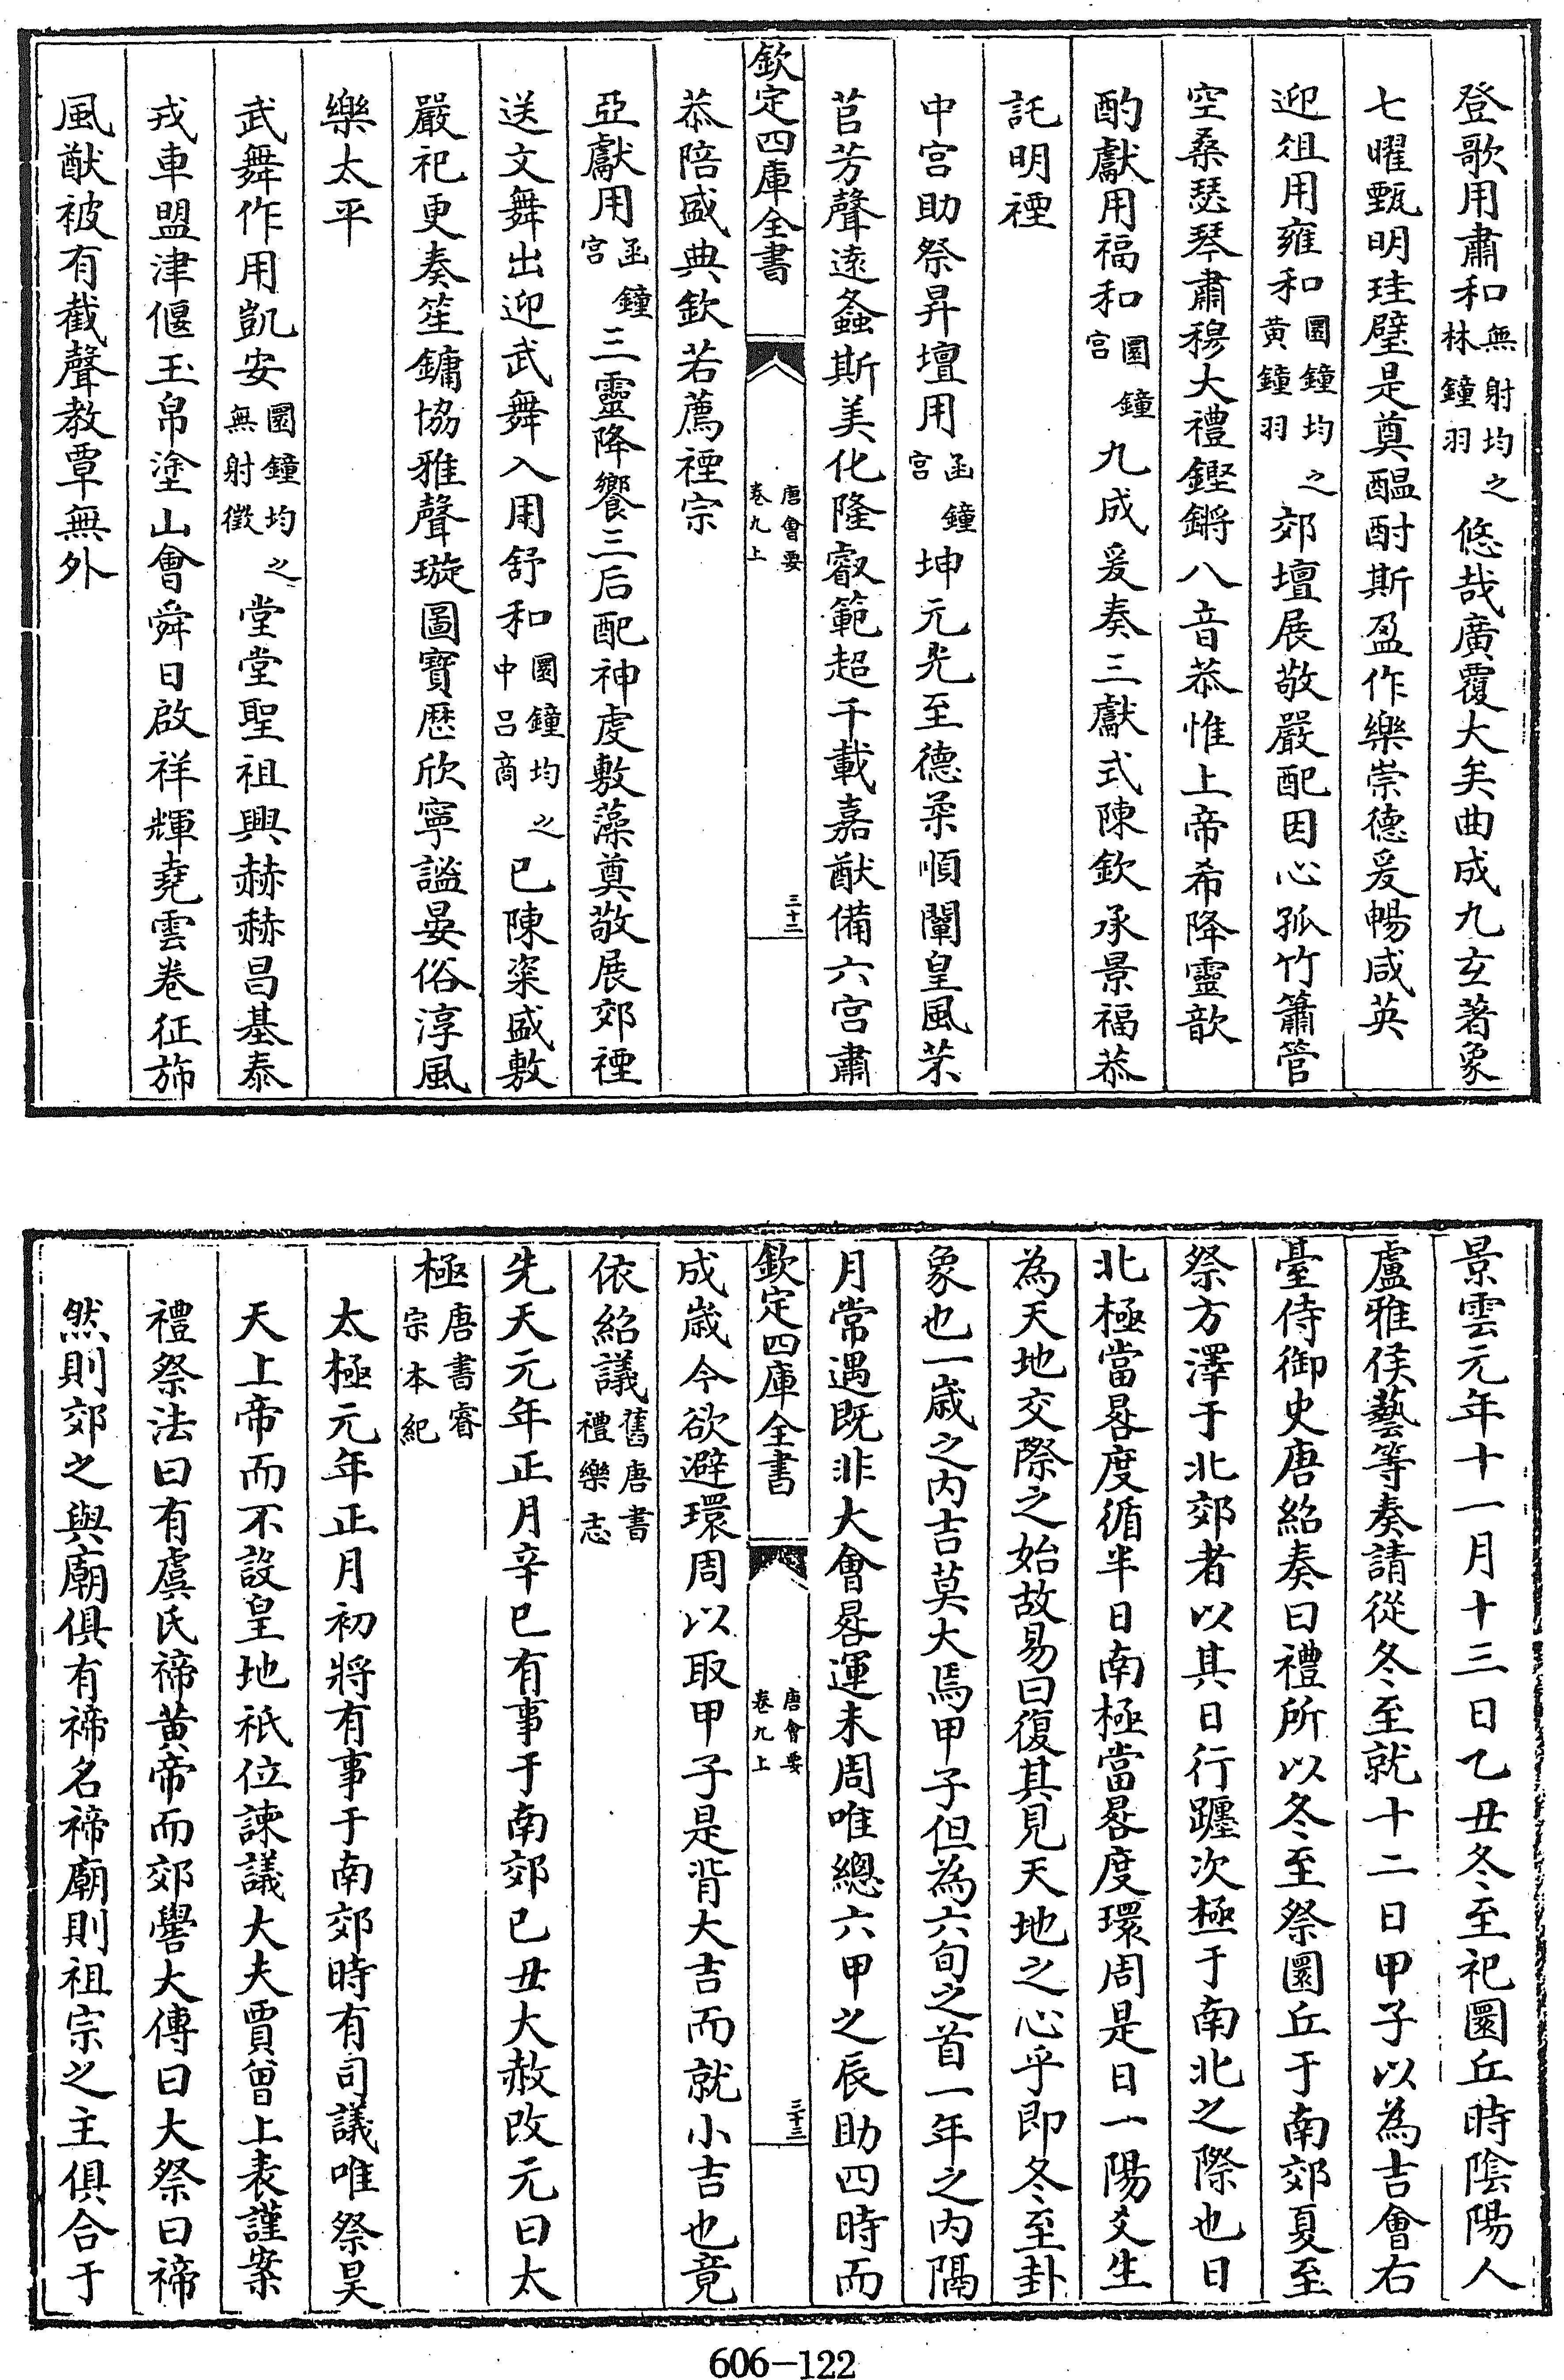 登歌用肅和無射均之林鐘羽悠哉廣覆大矣曲成九玄著象
七曜甄明珪璧是奠醖酎斯盈作樂崇德爰暢咸英
迎俎用雍和圜鐘均之黄鐘羽郊壇展敬嚴配因心孤竹簫管
空桑瑟琴肅穆大禮鏗鏘八音恭惟上帝希降靈歆
酌獻用福和圜鐘宫九成爰奏三獻式陳欽承景福恭
託明禋
中宫助祭昇壇用函鐘宫坤元光至德柔順闡皇風芣
苢芳聲遠螽斯美化隆叡範超千載嘉猷備六宫肅
欽定四庫全書 唐會要卷九上 三十二
恭陪盛典欽若薦禋宗
亞獻用函鐘宫三靈降饗三后配神虔敷藻奠敬展郊禋
送文舞出迎武舞入用舒和圜鐘均之中呂商已陳粢盛敷
嚴祀更奏笙鏞協雅聲璇圖寶厯欣寧謐晏俗淳風
樂太平
武舞作用凱安圜鐘均之無射徵堂堂聖祖興赫赫昌基泰
戎車盟津偃玉帛塗山會舜日啟祥輝堯雲卷征斾
風猷被有截聲教覃無外
景雲元年十一月十三日乙丑冬至祀圜丘時陰陽人
盧雅俟藝等奏請從冬至就十二日甲子以為吉會右
臺侍御史唐紹奏曰禮所以冬至祭圜丘于南郊夏至
祭方澤于北郊者以其日行躔次極于南北之際也日
北極當晷度循半日南極當晷度環周是日一陽爻生
為天地交際之始故易曰復其見天地之心乎即冬至卦
象也一歲之内吉莫大焉甲子但為六旬之首一年之内隔
月常遇既非大會晷運未周唯總六甲之辰助四時而
欽定四庫全書 唐會要卷九上 三十三
成歲今欲避環周以取甲子是背大吉而就小吉也竟
依紹議舊唐書禮樂志
先天元年正月辛巳有事于南郊已丑大赦改元曰太
極唐書睿宗本紀
太極元年正月初將有事于南郊時有司議唯祭昊
天上帝而不設皇地祇位諫議大夫賈曾上表謹案
禮祭法曰有虞氏禘黄帝而郊嚳大傳曰大祭曰禘
然則郊之與廟俱有禘名禘廟則祖宗之主俱合于
606-122